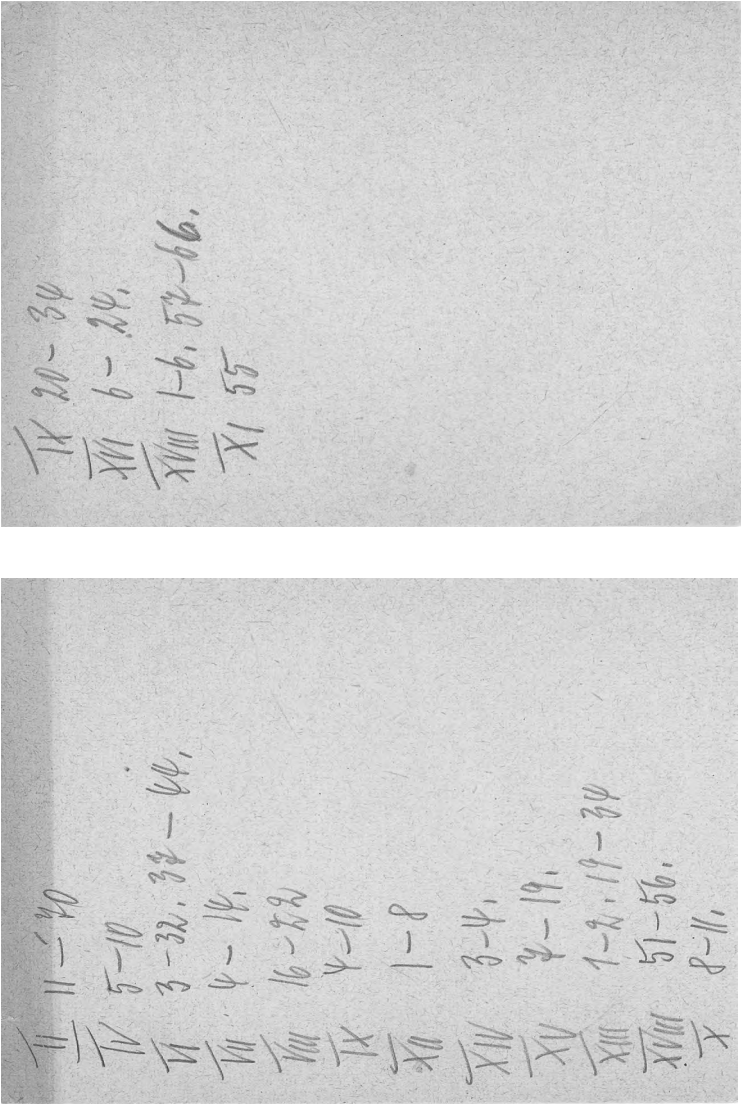 IX 20-34
XVI 6-24.
XVIII 1-6, 57-66.
XI 55
II 11-70
IV 5-10
VI 3-32, 37-44.
VII 4-14.
VIII 16-22
IX 4-10
XII 1-8
XIV 3-4.
XV 7-19.
XIII 1-2, 19-34
XVIII 51-56.
X 8-11.